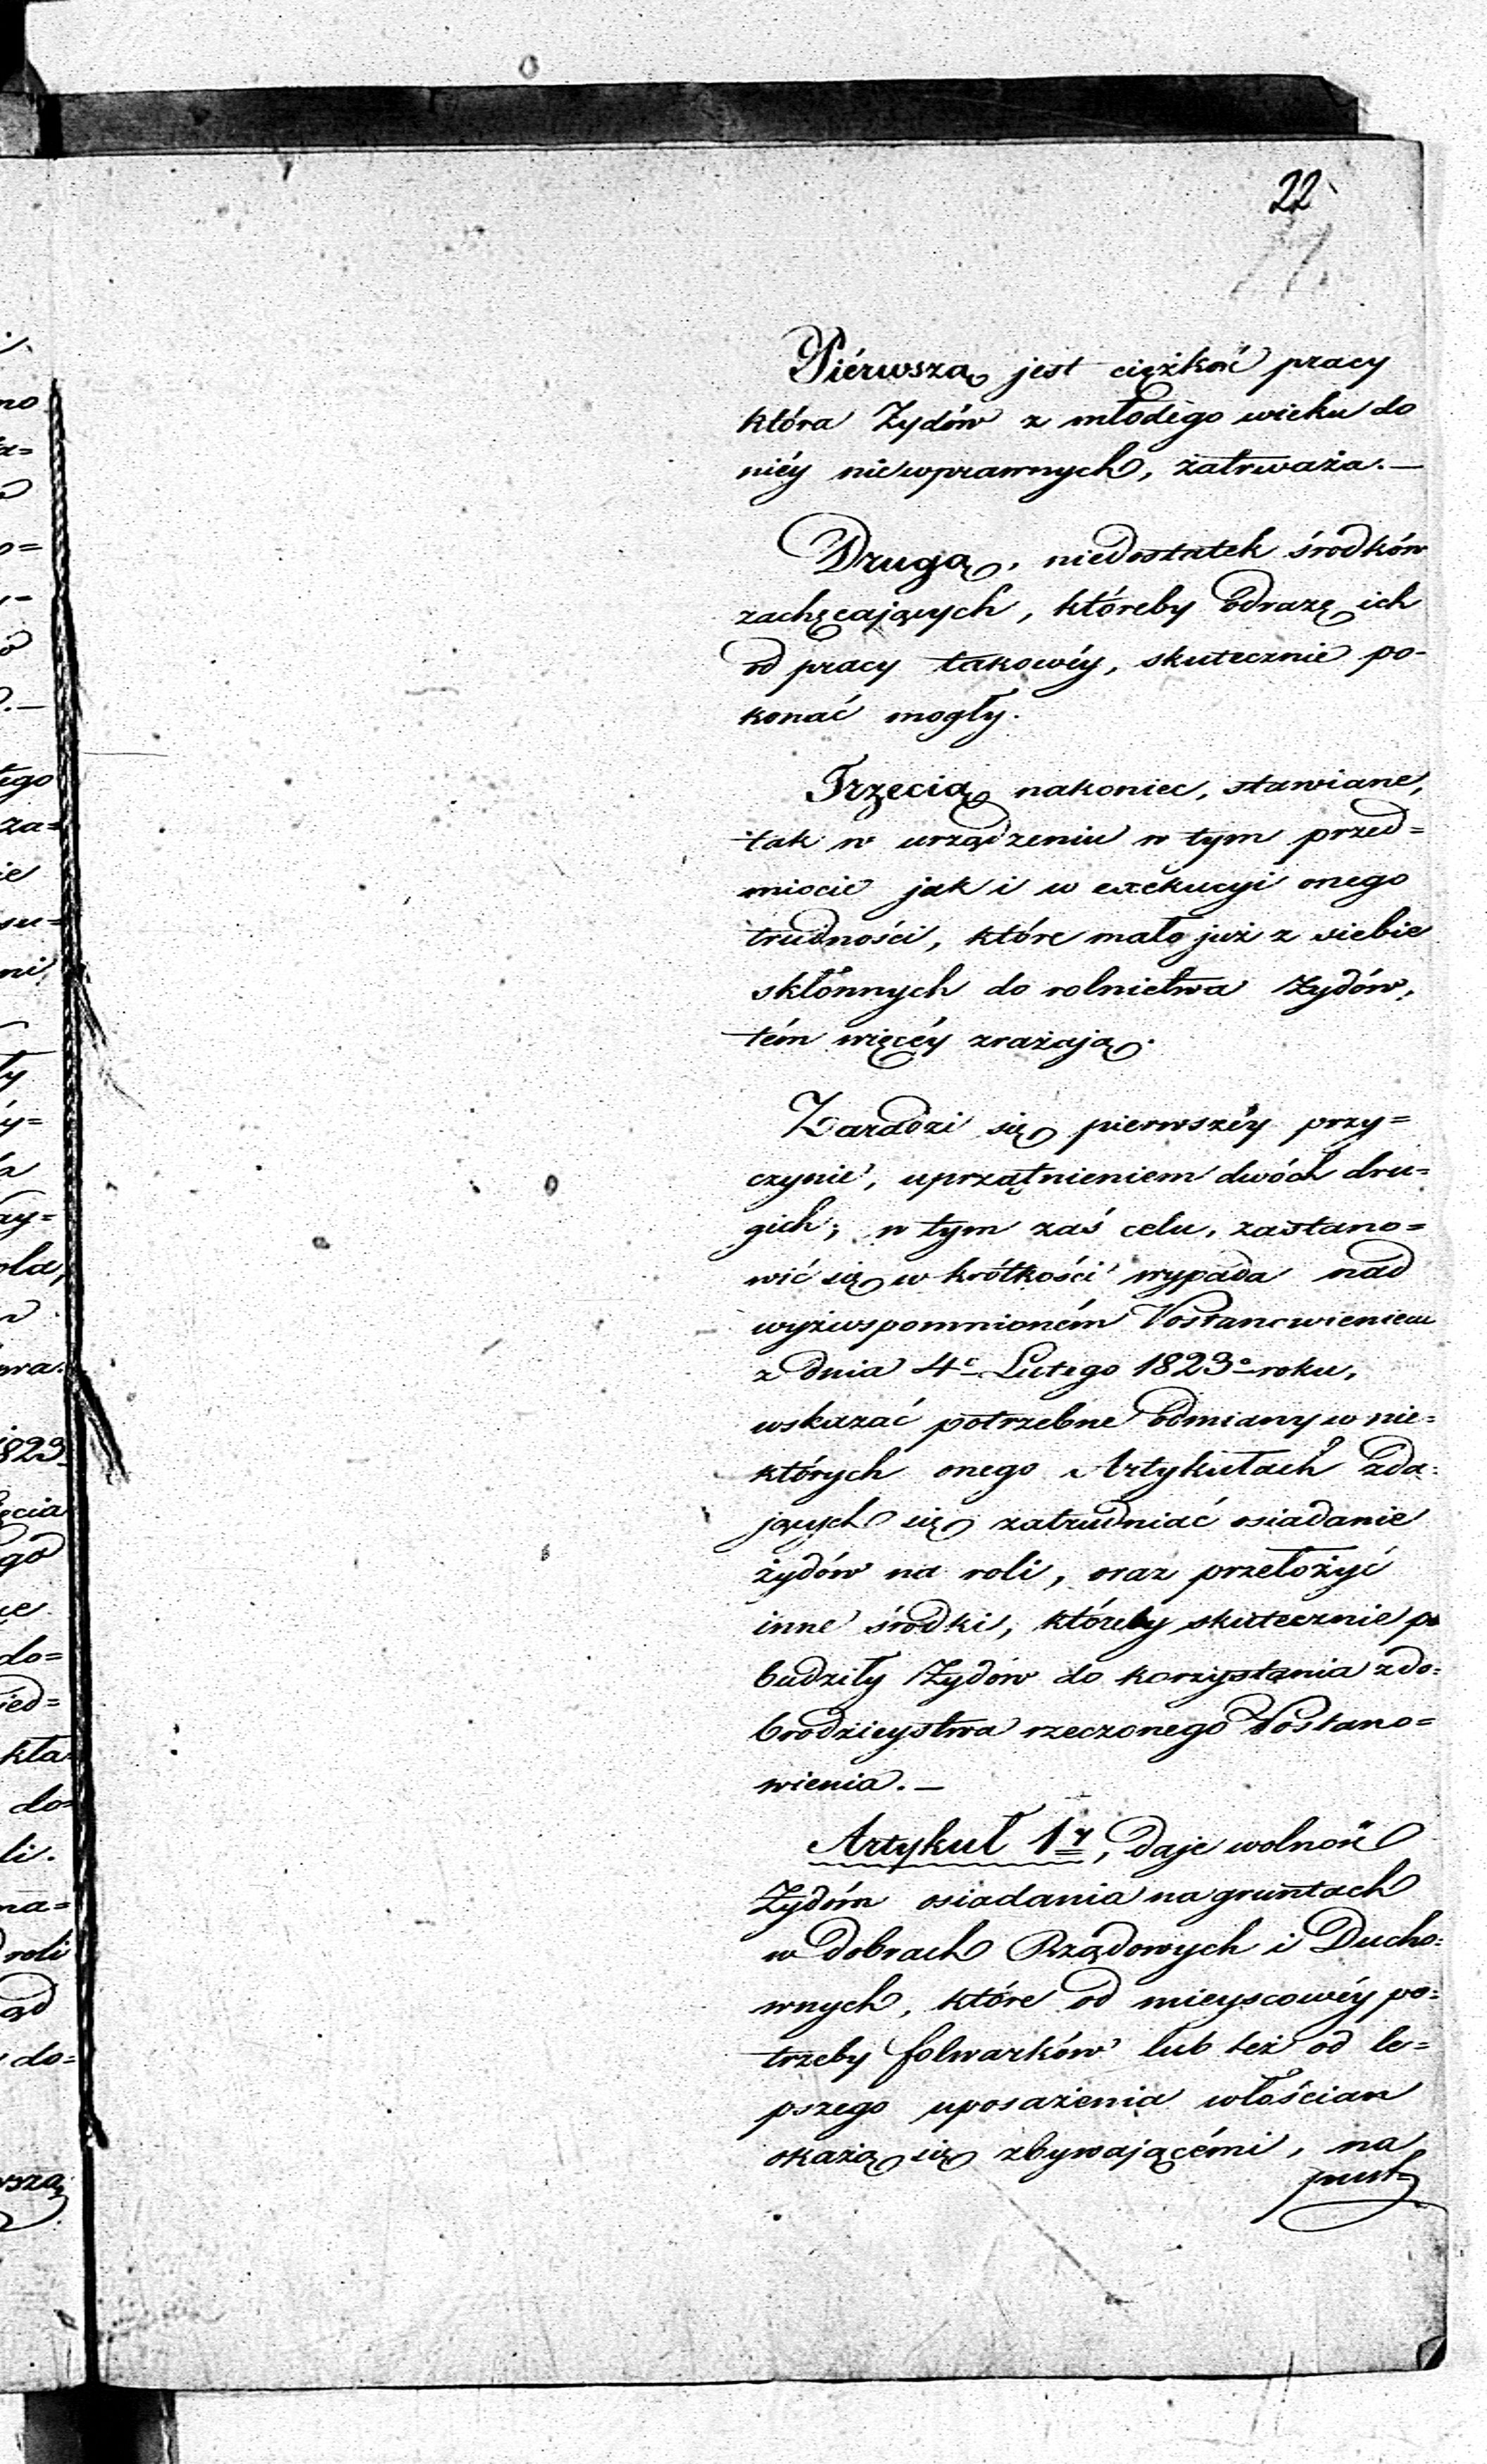 22
Piérwszą jest ciężkość pracy
która Żydów z młodégo wieku do
niéy niewprawnych, zatrważa.—
Drugą, niedostatek środków
zachęcających, któreby odrazę ich
od pracy takowéy, skutecznie po-
konać mogły.
Trzecią nakoniec, stawiane,
tak w urządzeniu w tym przed=
miocie jak i w exekucyi onego
trudności, które mało już z siebie
skłonnych do rolnictwa Żydów,
tém więcéy zrażają.
Zaradzi się pierwszéy przy=
czynie, uprzątnieniem dwóch dru=
gich; w tym zaś celu, zastano=
wić się w krótkości wypada nad
wyżwspomnioném Postanowieniem
z dnia 4c Lutego 1823o roku,
wskazać potrzebne odmiany w nie=
których onego Artykułach zda=
jących się zatrudniać osiadanie
żydów na roli, oraz przełożyć
inne środki, któreby skutecznie po
budziły Żydów do korzystania z do=
brodzieystwa rzeczonego Postano=
wienia.—
Artykuł 1y, daje wolność
Żydóm osiadania na gruntach
w dobrach Rządowych i Ducho=
wnych, które od mieyscowéy po=
trzeby folwarków lub też od le=
pszego uposażenia włościan
okażą się zbywającémi, na
pust=